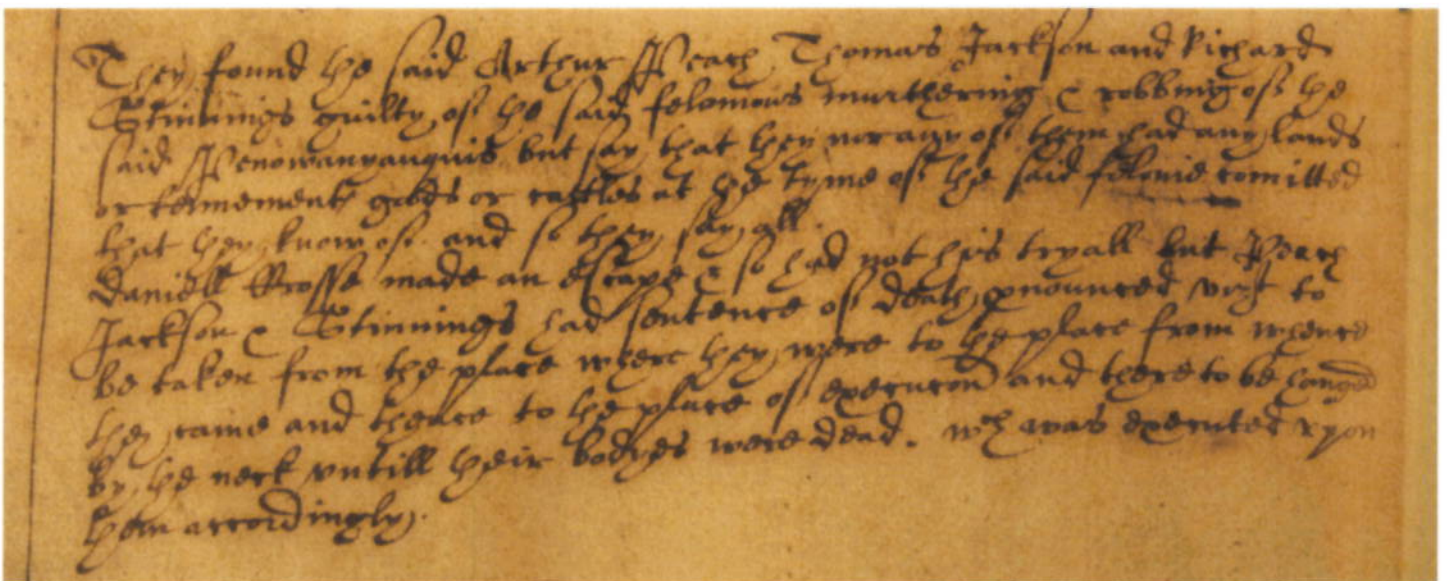 They found the said Arthur Peach Thomas Jackson and Richard
Stinnings guilty of the said felonious murthering & robbing of the
said Penowanyanquis but say that they nor any of them had any lands
or tennements goods or cattles at the tyme of the said felonie comitted
that they know of. and so they say all.
Daniell Crosse made an escape & so had not his tryall but Peach
Jackson & Stinnings had sentence of death pnounced vizt to
be taken from the place where they were to the place from whence
they came and thence to the place of execucon and there to be hanged
by the neck vntill their bodyes were dead. wch was executed vpon
them accordingly.